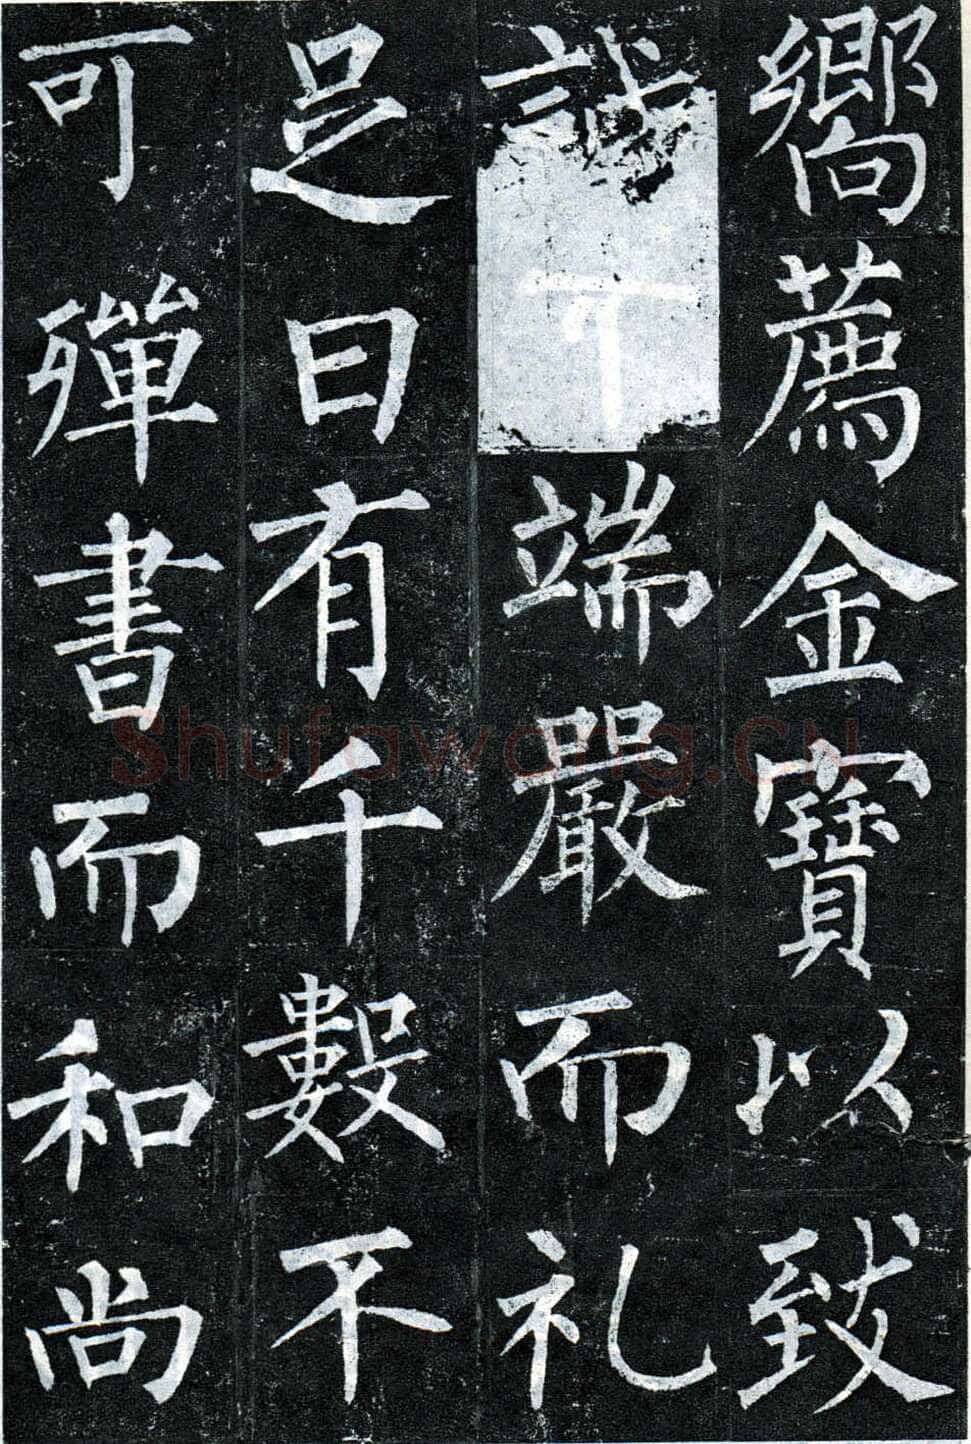 嚮薦金寶以致
誠丁端嚴而礼
足曰有千數不
可殫書而和尚
Shufawang.CN